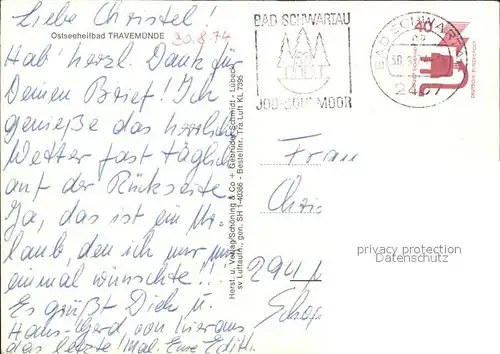 Liebe Christel!
Ostseeheilbad TRAVEMÜNDE
30.8.74
Hab' herzl. Dank für
Deinen Brief! Ich
genieße das herrliche
Wetter fast täglich
auf der Rückseite
Ja, das ist ein Ur-
laub, den ich mir nur
einmal wünschte!!
Es grüßt Dich u.
Hans-Gerd von hieraus
das letzte Mal. Eure Edith
Herst. u. Verlag Schöning & Co + Gebrüder Schmidt - Lübeck
sv Luftaufn., gen. SH 1-40386 - Bestellnr. Tra Luft KL 7395
BAD SCHWARTAU
JOD-SOLE-MOOR
BAD SCHWARTAU
24
40
Frau
Chris
privacy protection
Datenschutz